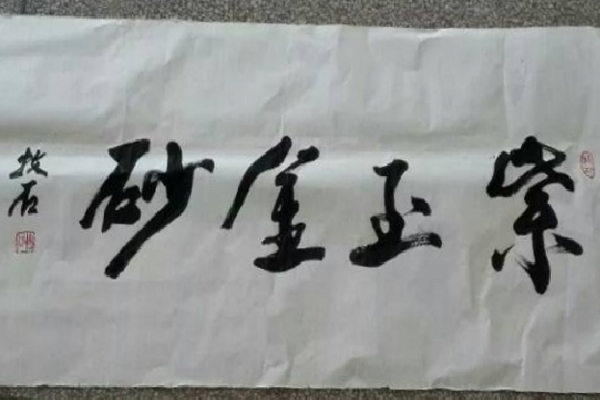 紫玉金砂
牧石